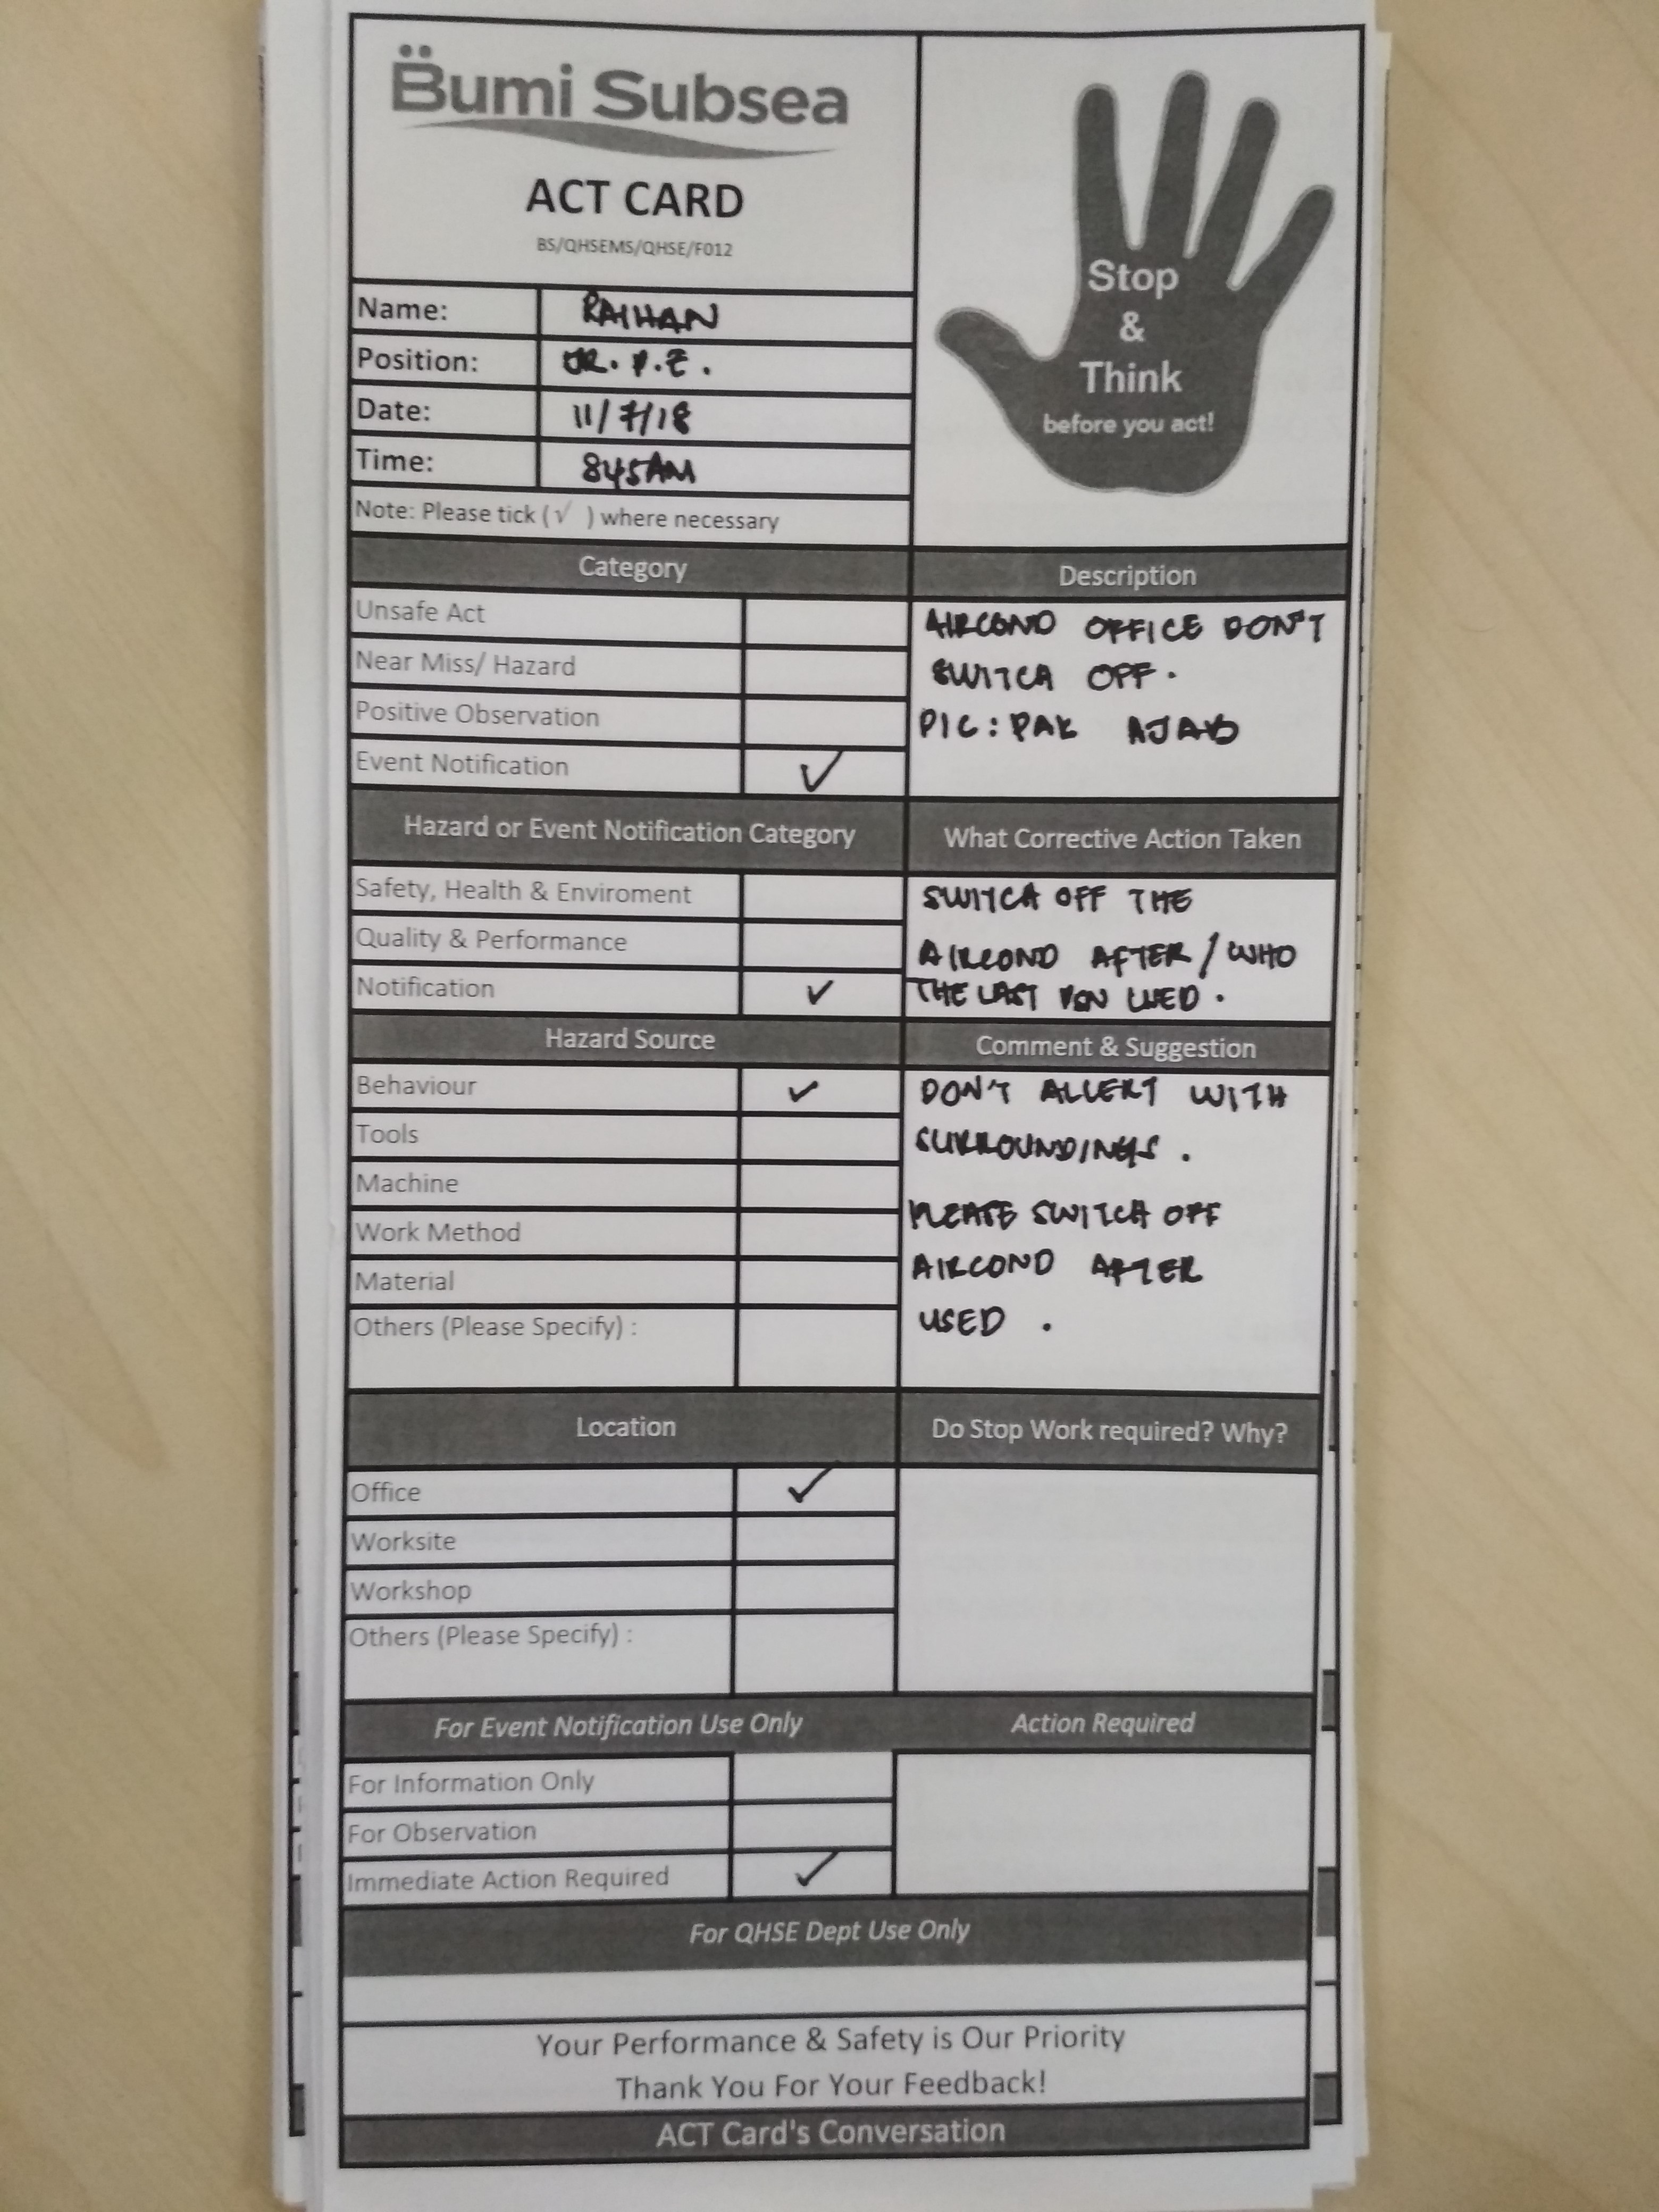 Bumi Subsea
ACT CARD
BS/QHSEMS/QHSE/F012
Stop
&
Think
before you act!
Name: RAIHAN
Position: JR. P.E.
Date: 11/7/18
Time: 845AM
Note: Please tick (√ ) where necessary
Category
Unsafe Act
Near Miss/ Hazard
Positive Observation
Event Notification ✓
Description
AIRCOND OFFICE DON'T
SWITCH OFF.
PIC: PAK AJAB
Hazard or Event Notification Category
Safety, Health & Enviroment
Quality & Performance
Notification ✓
What Corrective Action Taken
SWITCH OFF THE
AIRCOND AFTER / WHO
THE LAST USED.
Hazard Source
Behaviour ✓
Tools
Machine
Work Method
Material
Others (Please Specify) :
Comment & Suggestion
DON'T ALLERT WITH
SURROUNDINGS.
PLEASE SWITCH OFF
AIRCOND AFTER
USED .
Location
Office ✓
Worksite
Workshop
Others (Please Specify) :
Do Stop Work required? Why?
For Event Notification Use Only
For Information Only
For Observation
Immediate Action Required ✓
Action Required
For QHSE Dept Use Only
Your Performance & Safety is Our Priority
Thank You For Your Feedback!
ACT Card's Conversation